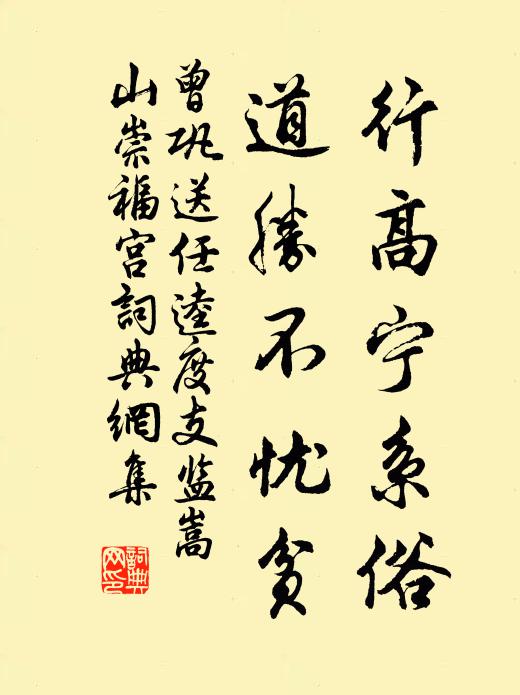 行高宁系俗
道胜不忧贫
曾巩送任逵度支监嵩
山崇福宫詞典網集
詞典網印